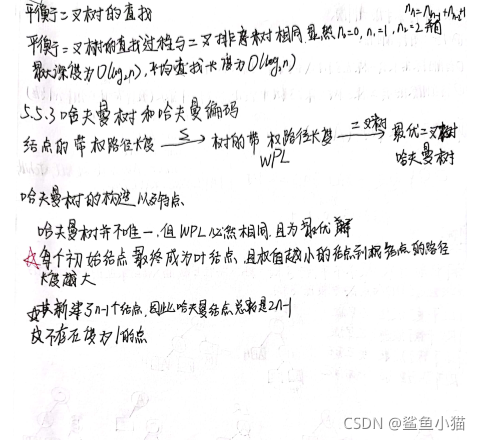 平衡二叉树的查找
平衡二叉树的查找过程与二叉排序树相同,显然n₀=0, n₁=1, n₂=2 并有
nₕ=nₕ₋₁+nₕ₋₂+1
最大深度为O(log₂n),平均查找长度为O(log₂n)
5.5.3 哈夫曼树和哈夫曼编码
结点的带权路径长度 —∑→ 树的带权路径长度 —二叉树→ 最优二叉树
WPL 哈夫曼树
哈夫曼树的构造
哈夫曼树并不唯一,但WPL必然相同,且为最优解
☆每个初始结点最终成为叶结点,且权值越小的结点到根结点的路径
长度越大
☆共新建了n-1个结点,因此哈夫曼结点总数是2n-1
故不存在度为1的点
CSDN @鲨鱼小猫